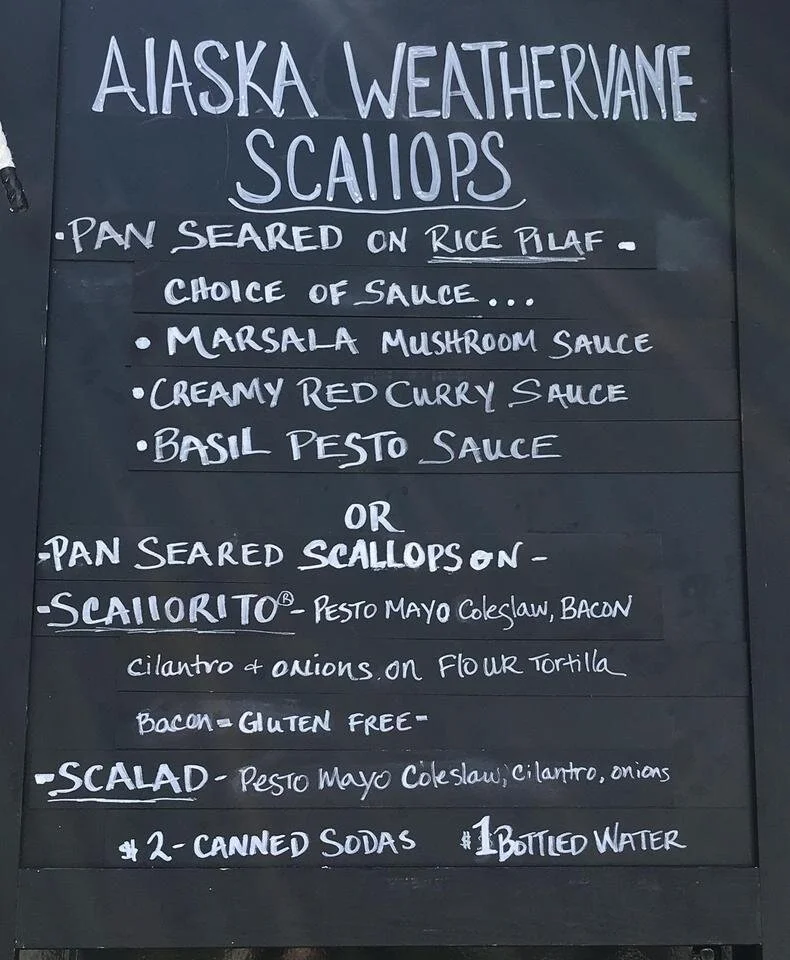 AlASKA WEATHERVANE
SCAllOPS
·PAN SEARED ON RICE PILAF -
CHOICE OF SAUCE...
• MARSALA MUSHROOM SAUCE
•CREAMY RED CURRY SAUCE
•BASIL PESTO SAUCE
OR
-PAN SEARED SCALLOPS ON -
-SCAllORITO®- PESTO MAYO Coleslaw, BACON
cilantro + ONions on FlOUR Tortilla
Bacon = GlUTEN FREE-
-SCALAD - Pesto Mayo Coleslaw, cilantro, onions
$2- CANNED SODAS $1 BOTTLED WATER